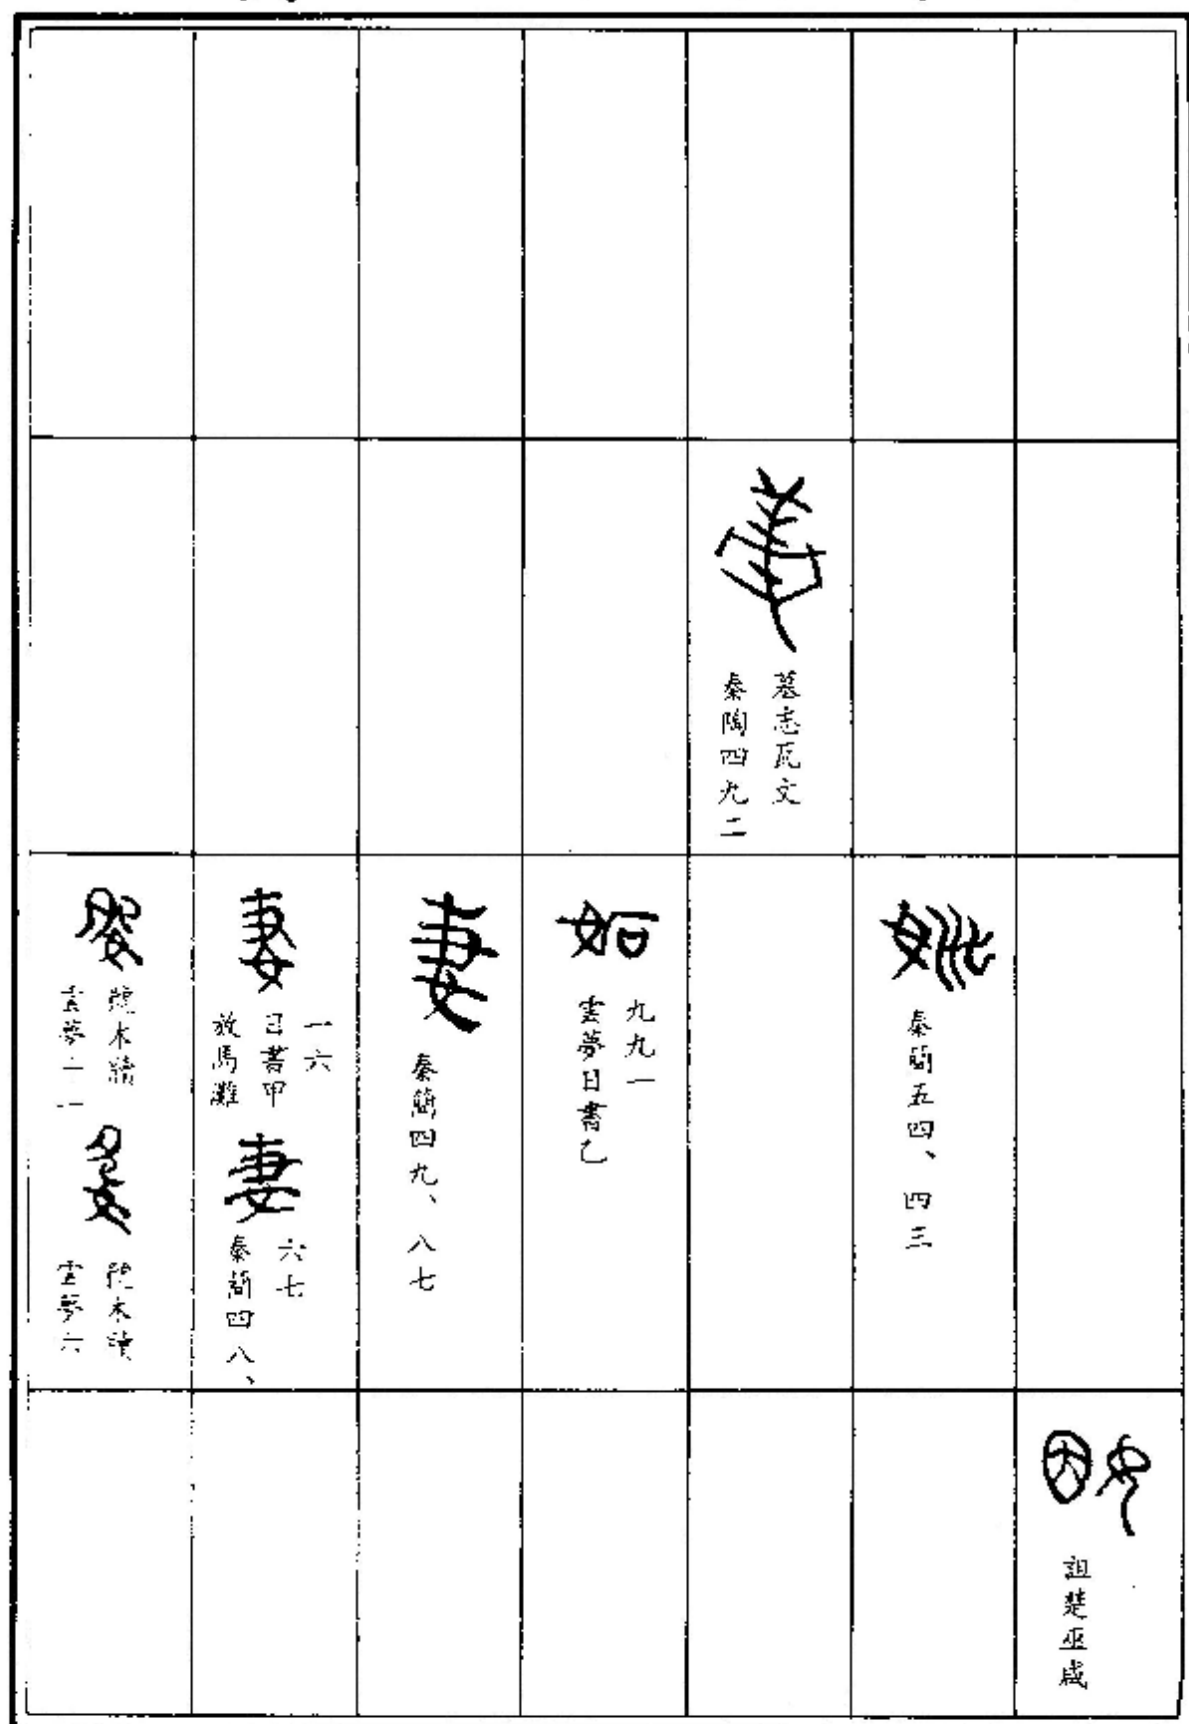 姻
詛楚巫咸
姚
秦簡五四、四三
墓志瓦文
秦陶四九二
如
九九一
雲夢日書乙
妻
秦簡四九、八七
妻
一六
日書甲
放馬灘
妻
六七
秦簡四八、
牘木牘
雲夢十一
牘木牘
雲夢六